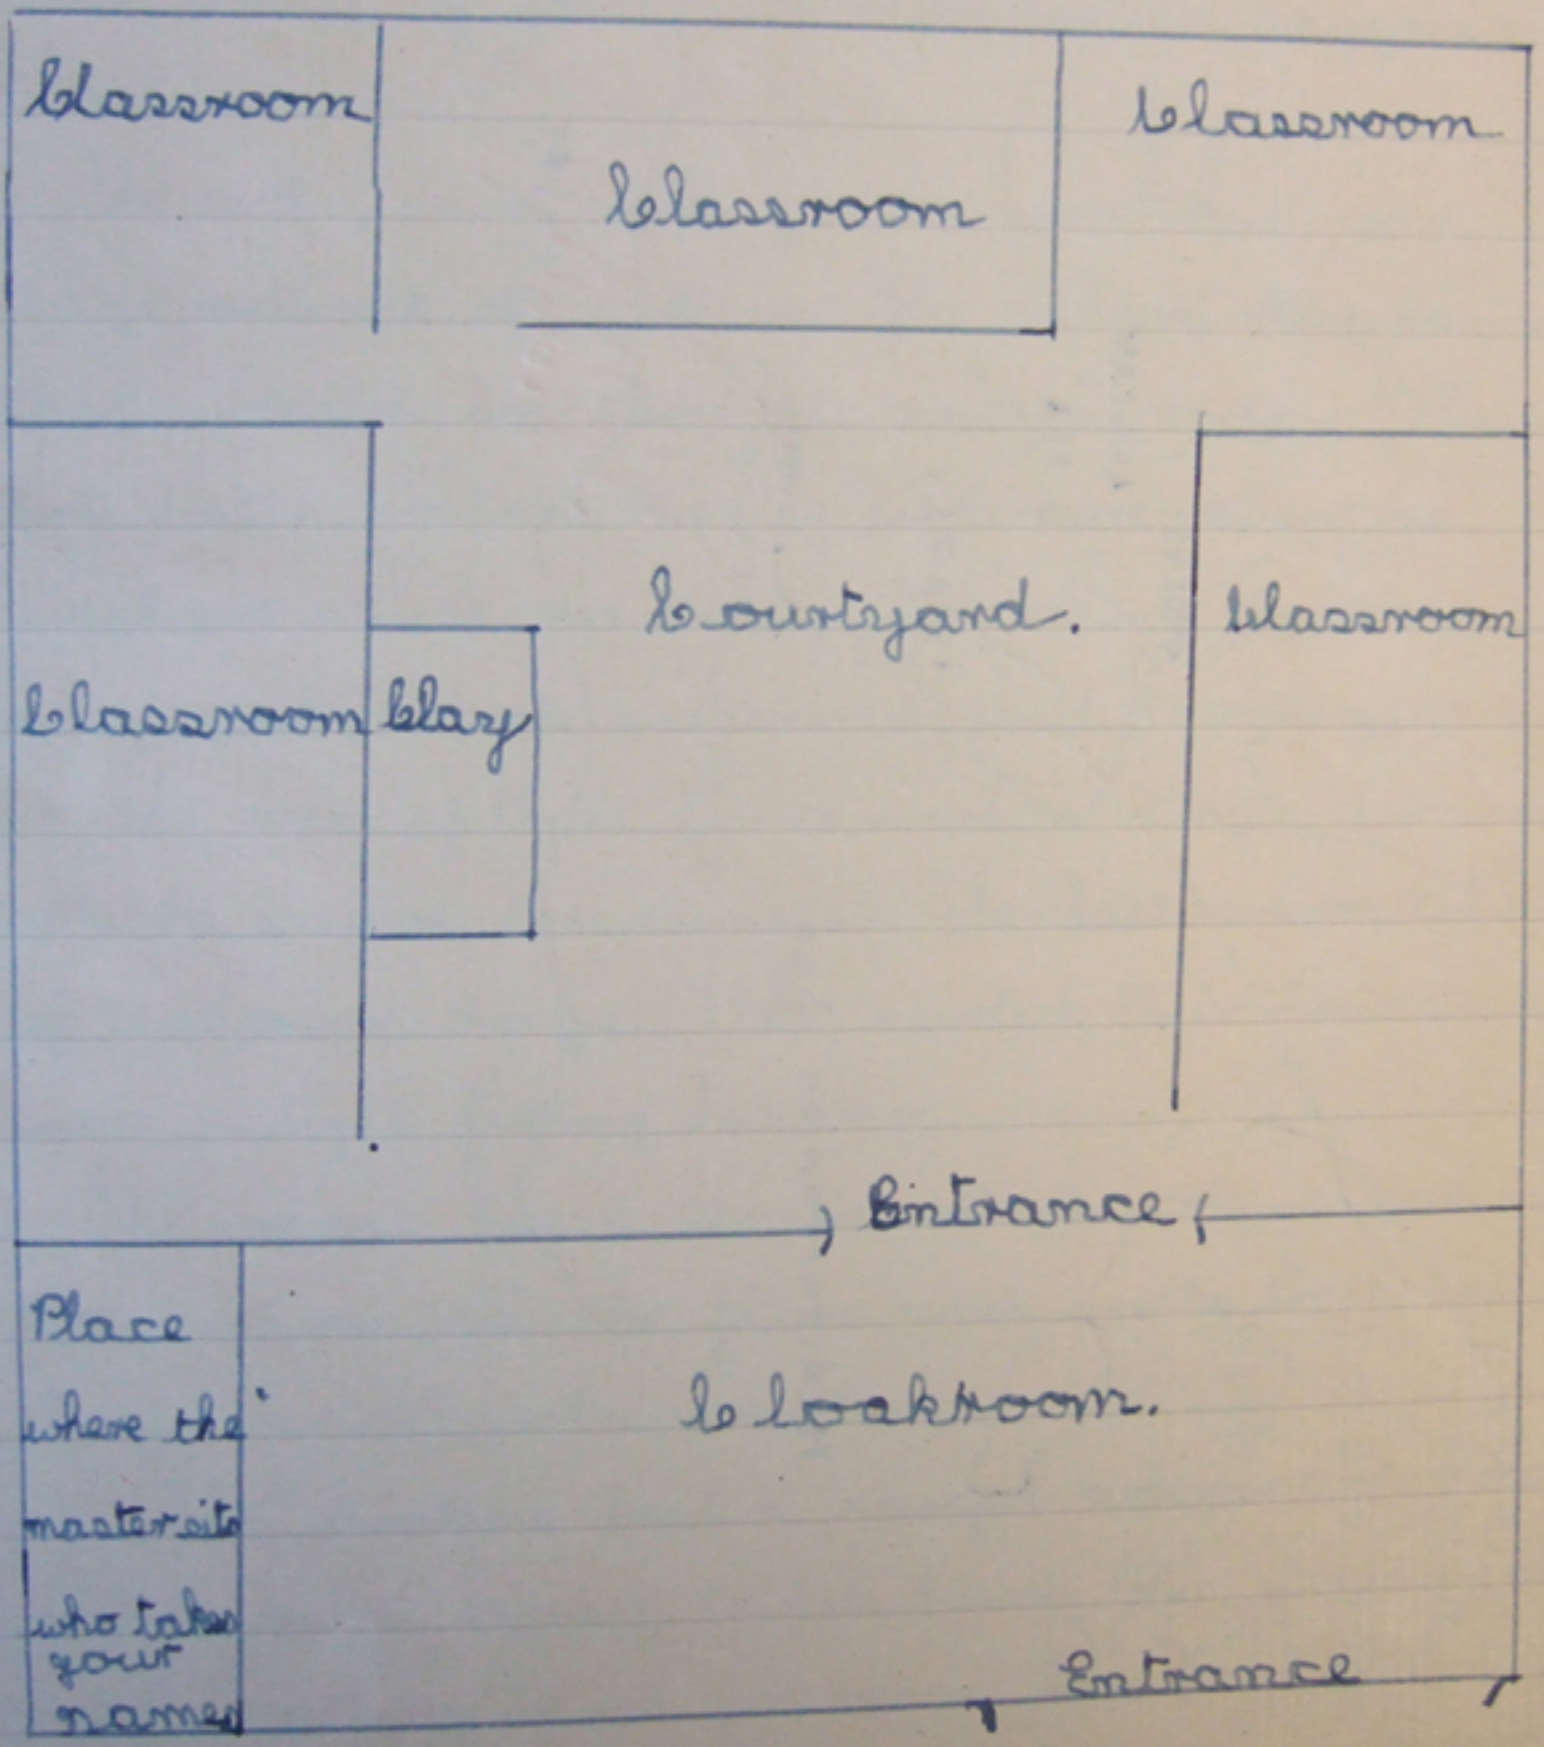 Classroom
Classroom
Classroom
Courtyard.
Classroom
Classroom
Clay
Entrance
Place
where the
master sits
who takes
your
names
Cloakroom.
Entrance